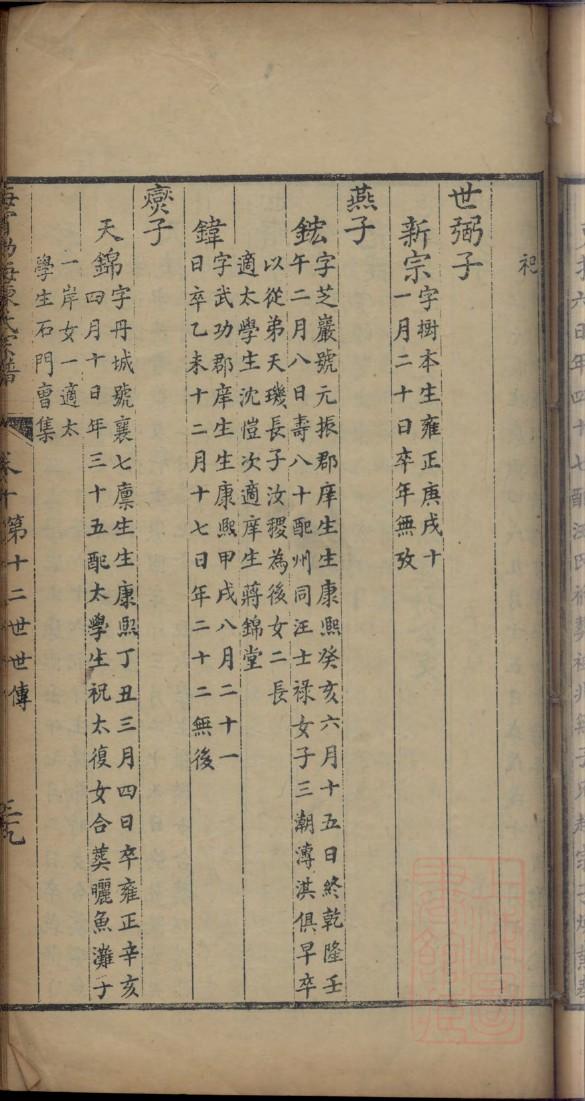 祀
世弼子
新宗
字樹本生雍正庚戌十
一月二十日卒年無攷
燕子
鋐
字芝巖號元振郡庠生生康熙癸亥六月十五日終乾隆壬
午二月八日壽八十配州同汪士祿女子三潮溥淇俱早卒
以從弟天璣長子汝稷為後女二長
適太學生沈愷次適庠生蔣錦堂
鍏
字武功郡庠生生康熙甲戌八月二十一
日卒乙未十二月十七日年二十二無後
爕子
天錦
字丹城號襄七廩生生康熙丁丑三月四日卒雍正辛亥
四月十日年三十五配太學生祝太復女合葬曬魚灘子
一岸女一適太
學生石門曹集
海寧渤海陳氏宗譜
第十二世世傳